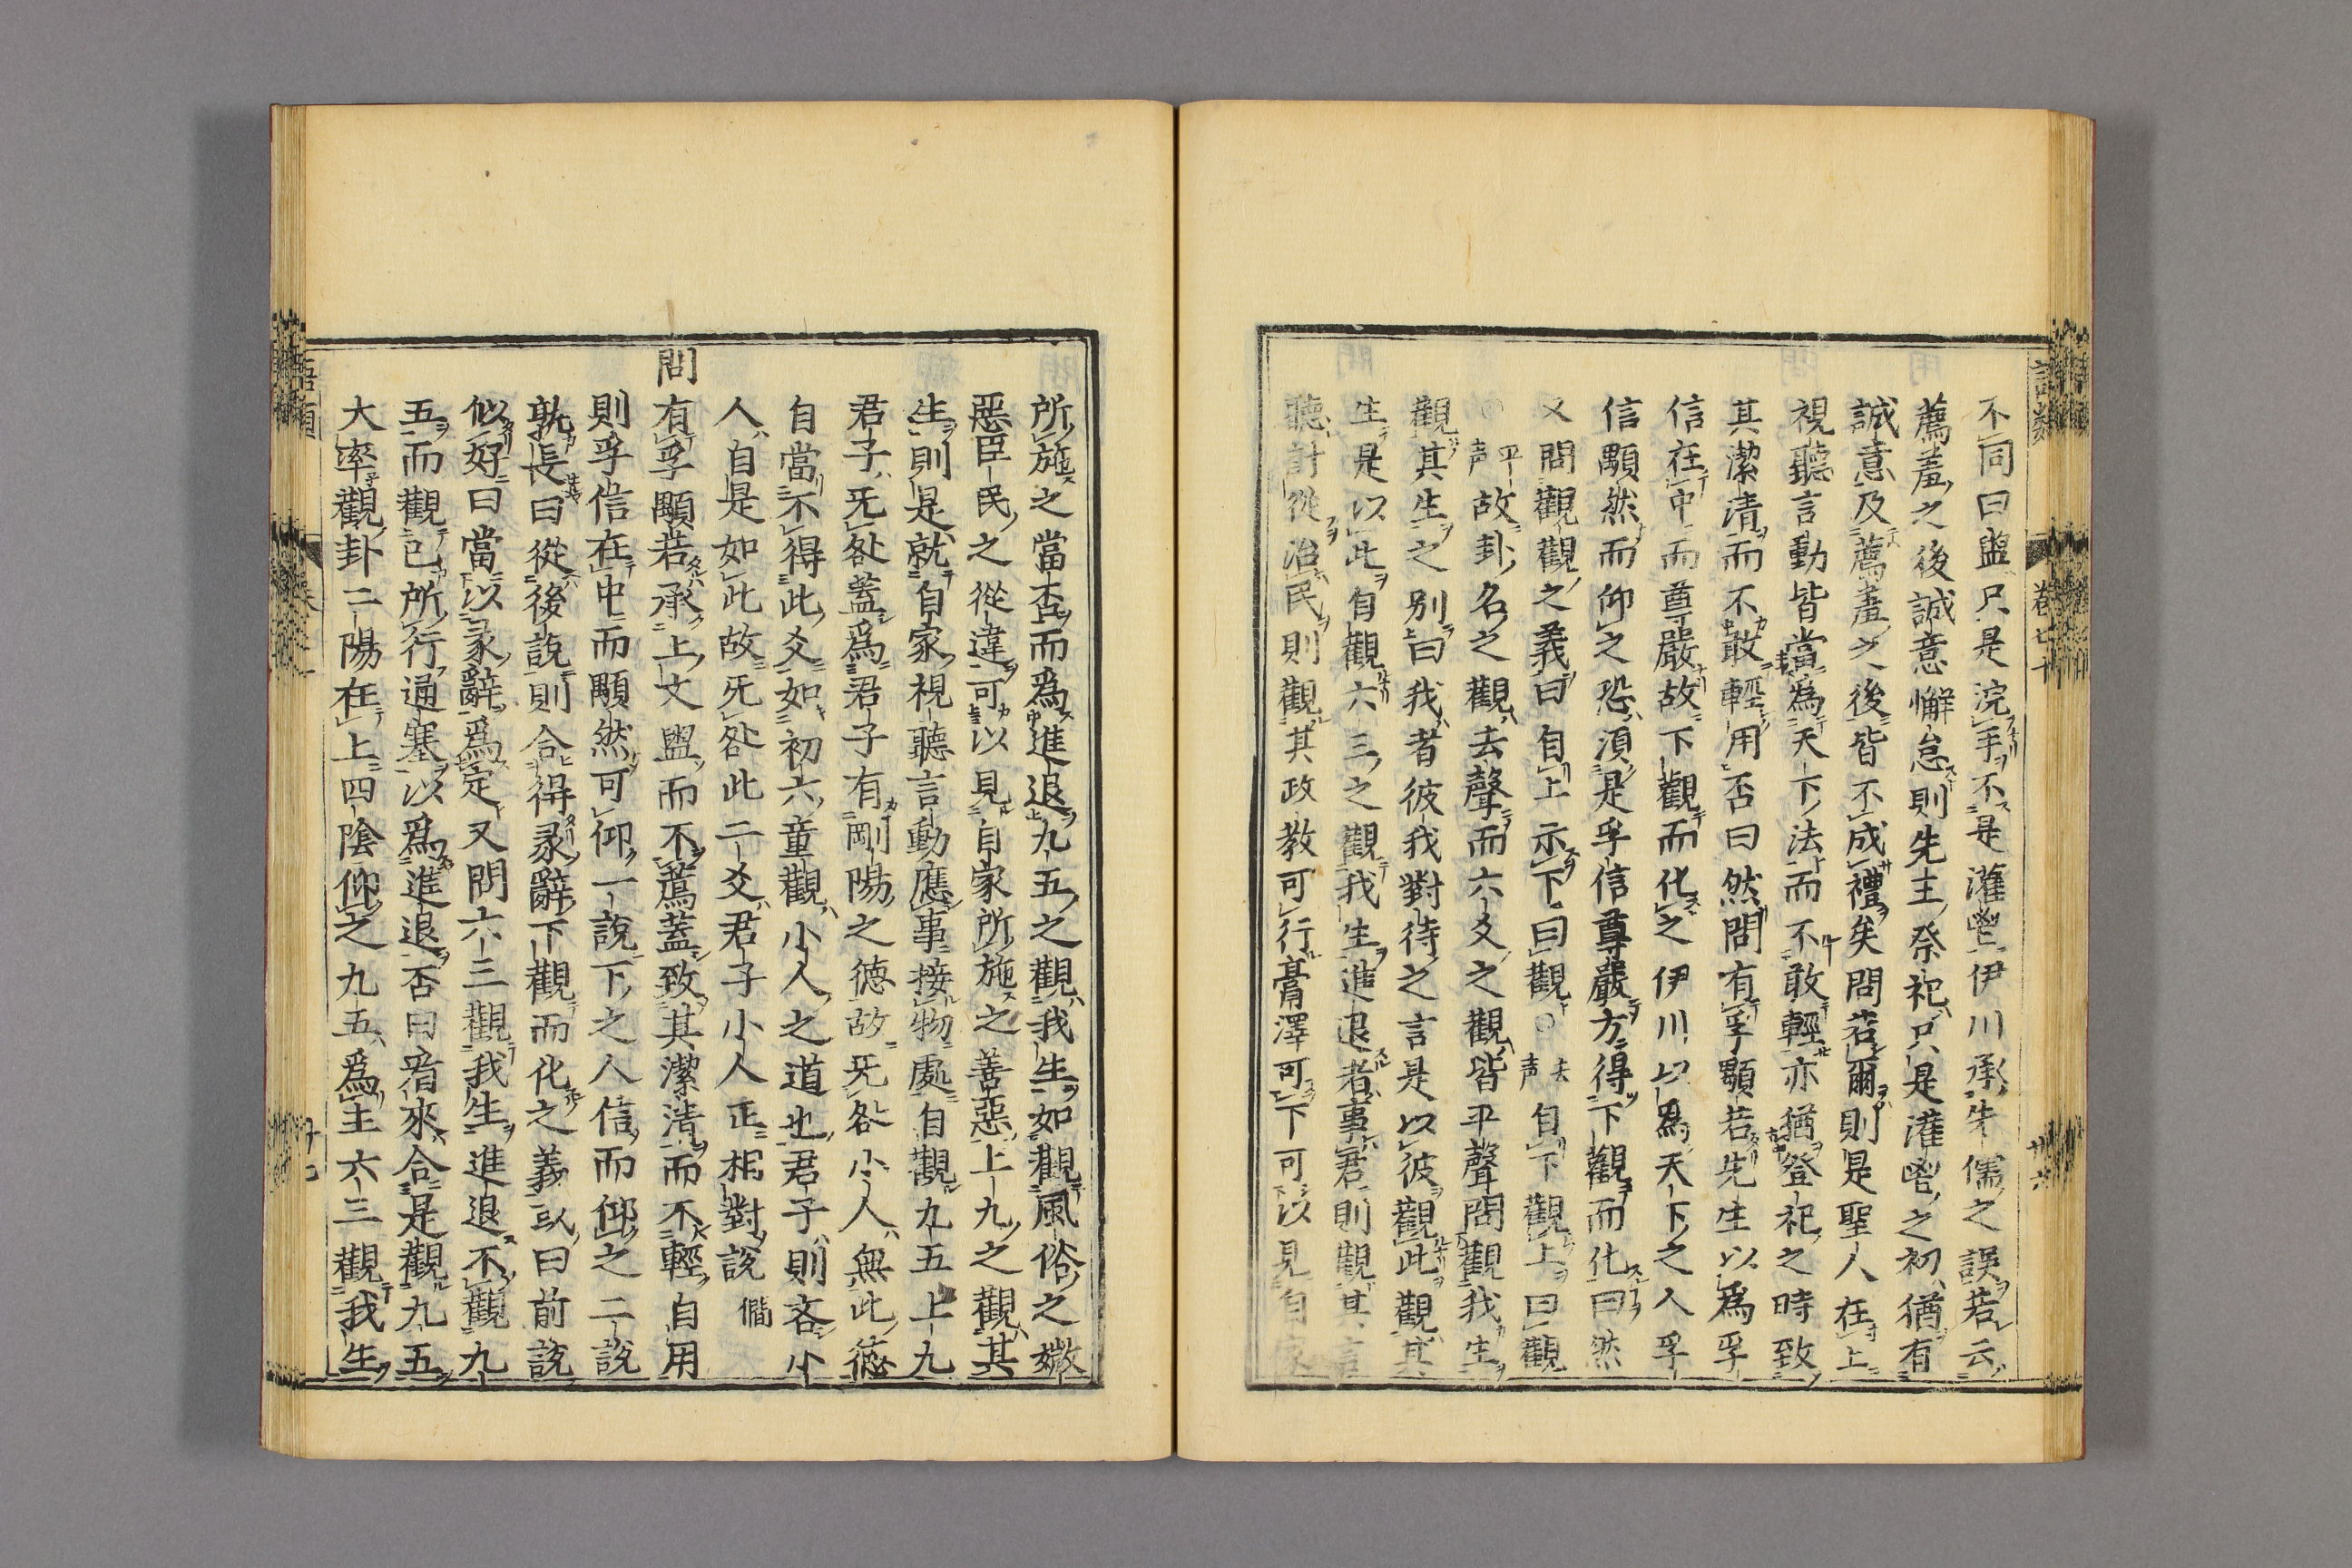 不同曰盥只是浣手不是灌鬯伊川承先儒之誤若云
薦羞之後誠意懈怠則先王祭祀只是灌鬯之初猶有
誠意及薦羞之後皆不成禮矣問若爾則是聖人在上
視聽言動皆當爲天下法而不敢輕亦猶登祀之時致
其潔清而不敢輕用否曰然問有孚顒若先生以爲孚
信在中而尊嚴故下觀而化之伊川以爲天下之人孚
信顒然而仰之恐須是孚信尊嚴方得下觀而化曰然
又問觀觀之義曰自上示下曰觀去声自下觀上曰觀
平声故卦名之觀去聲而六爻之觀皆平聲問觀我生
觀其生之別曰我者彼我對待之言是以彼觀此觀其
生是以此自觀六三之觀我生進退者事君則觀其言
聽計從治民則觀其政教可行膏澤可下可以見自家
所施之當否而爲進退九五之觀我生如觀風俗之媺
惡臣民之從違可以見自家所施之善惡上九之觀其
生則是就自家視聽言動應事接物處自觀九五上九
君子无咎蓋爲君子有剛陽之德故无咎小人無此德
自當不得此爻如初六童觀小人之道也君子則吝小
人自是如此故无咎此二爻君子小人正相對說 僴
問
有孚顒若承上文盥而不薦蓋致其潔清而不輕自用
則孚信在中而顒然可仰一說下之人信而仰之二說
孰長曰從後說則合得彖辭下觀而化之義或曰前說
似好曰當以彖辭爲定又問六三觀我生進退不觀九
五而觀己所行通塞以爲進退否曰看來合是觀九五
大率觀卦二陽在上四陰仰之九五爲主六三觀我生
語類
卷七十
廿六